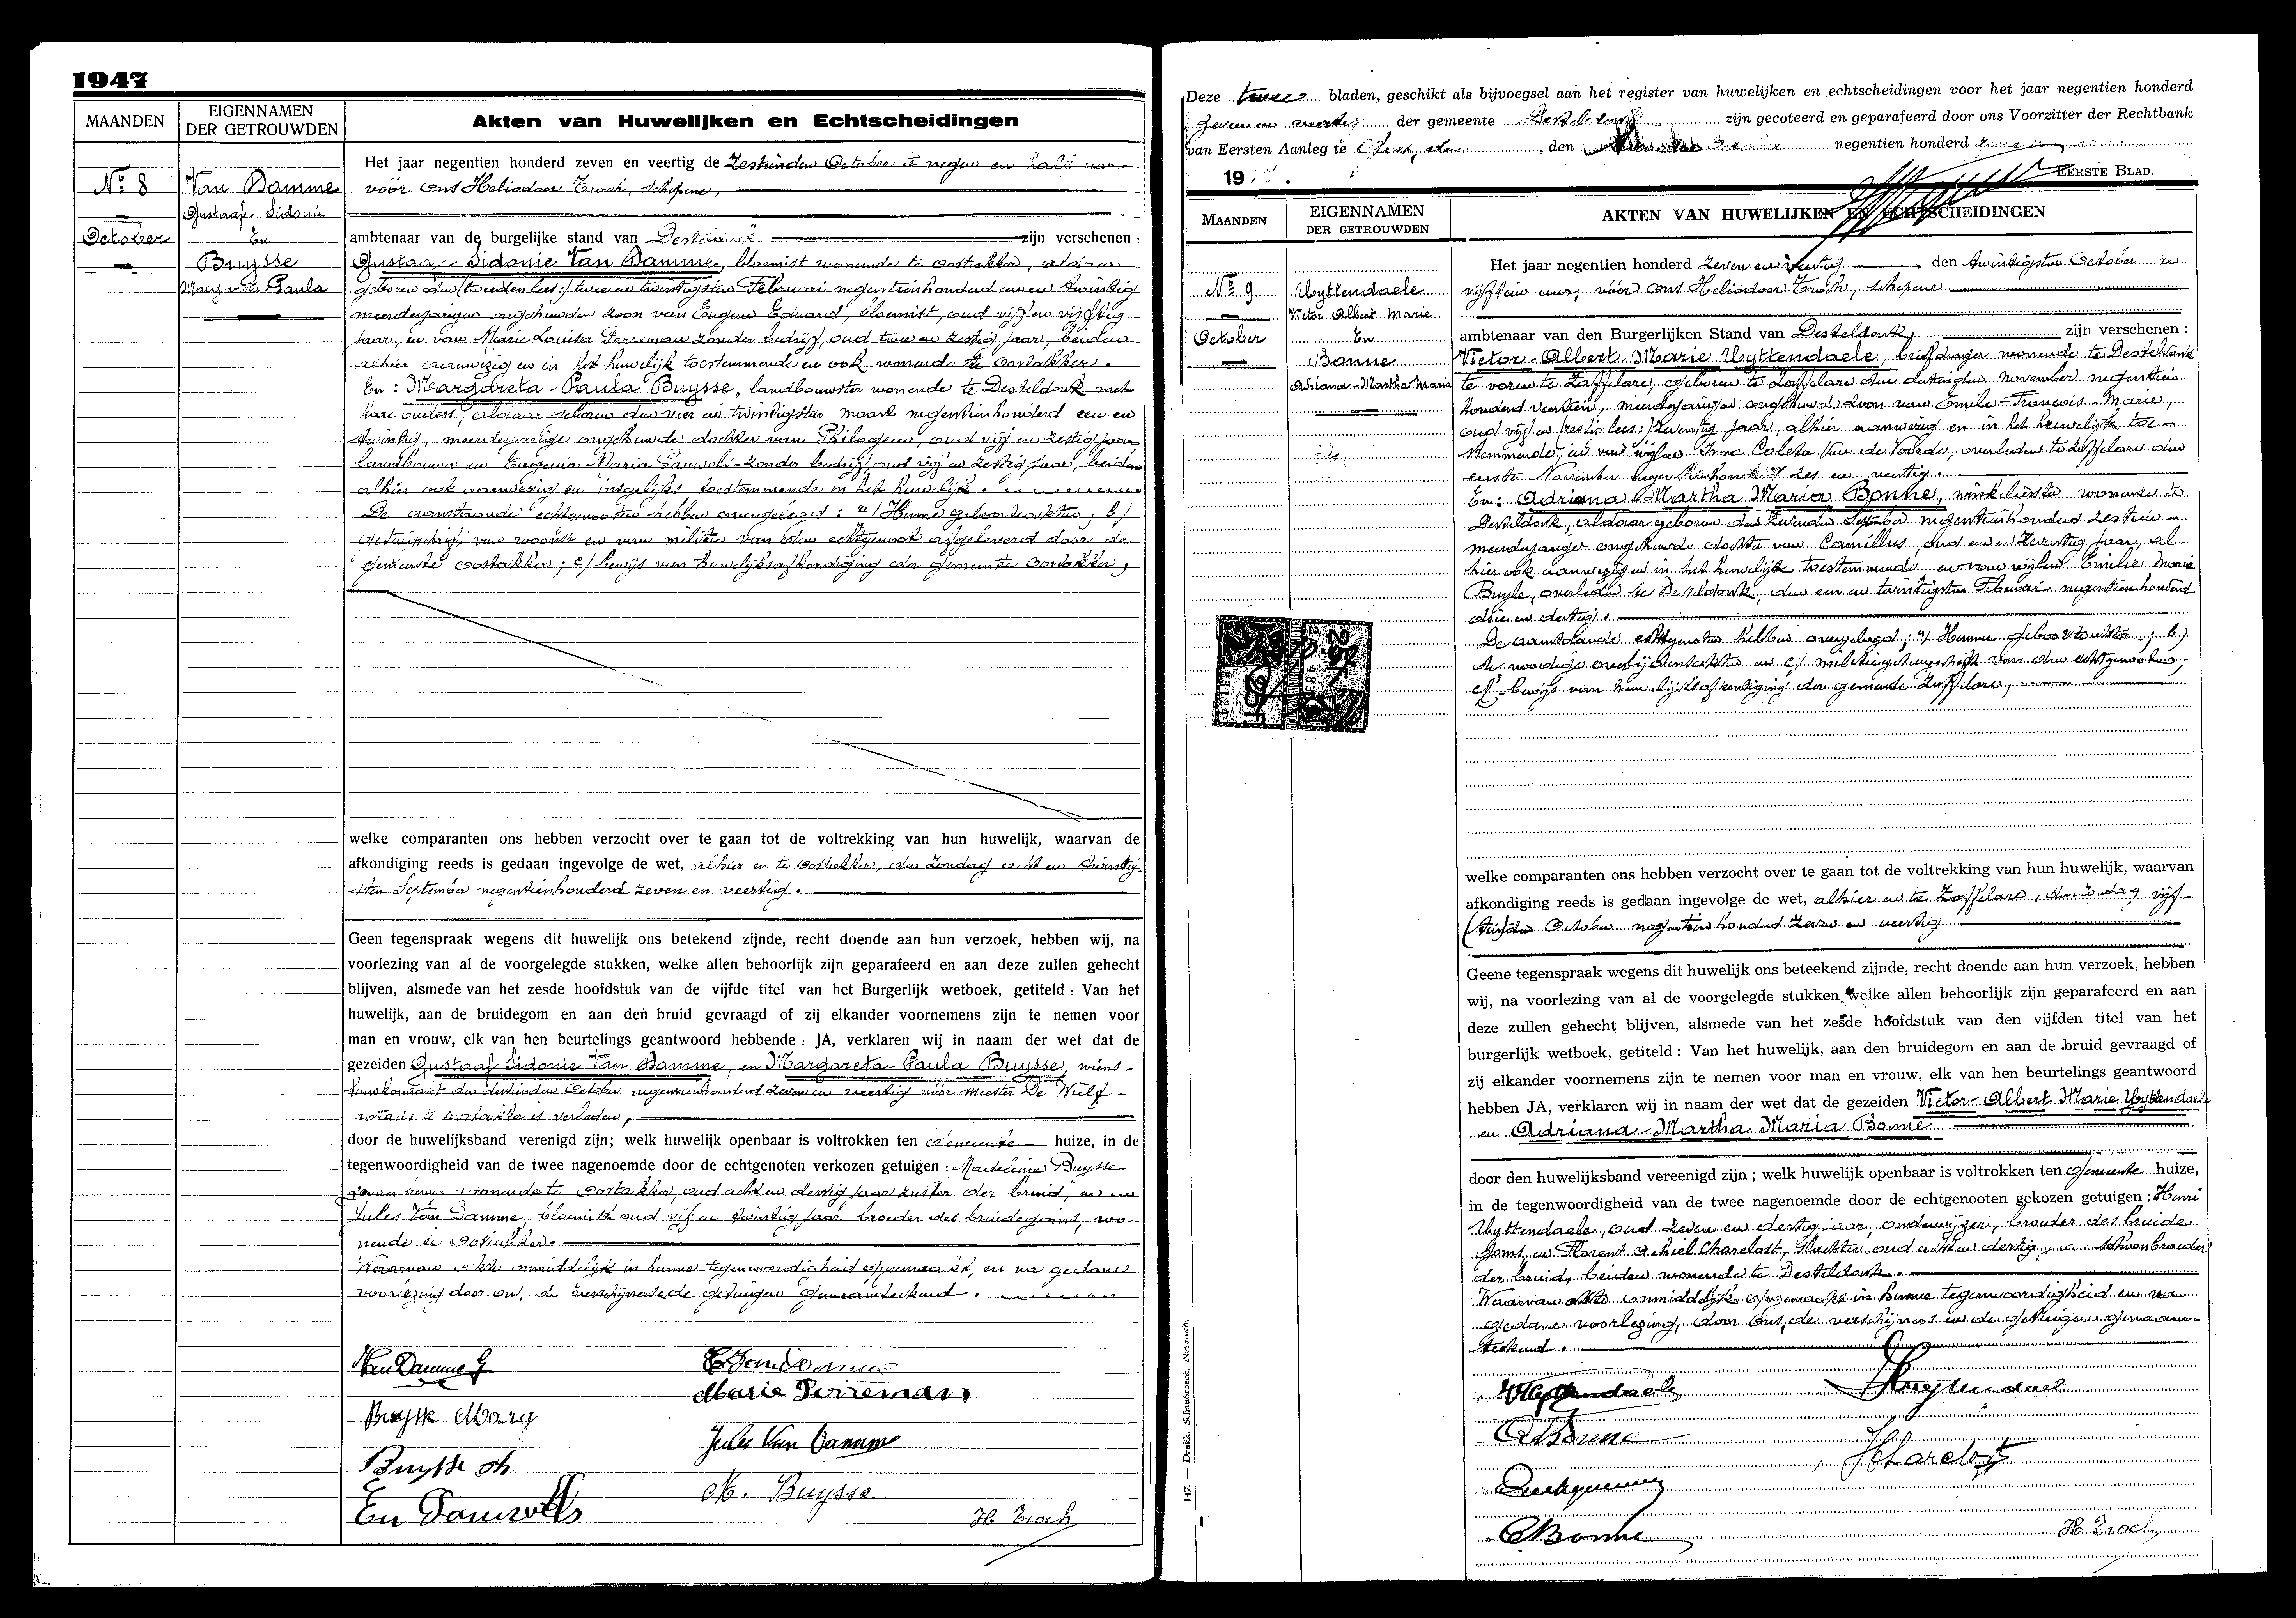 1947
MAANDEN
EIGENNAMEN
DER GETROUWDEN
Akten van Huwelijken en Echtscheidingen
No 8
October
Van Damme
Gustaaf-Sidonie
En
Buysse
Margareta Paula
Het jaar negentien honderd zeven en veertig de zestienden October te negen en half uur
vóór ons Heliodoor Troch, schepene,
ambtenaar van de burgelijke stand van Desteldonk zijn verschenen :
Gustaaf-Sidonie Van Damme, bloemist wonende te Oostakker, aldaar
geboren den (tweeden lees:) twee en twintigsten Februari negentienhonderd een en twintig
meerderjarigen ongehuwden zoon van Eugeen Eduard, bloemist, oud vijf en vijftig
jaar, en van Marie Louisa Perreman zonder bedrijf, oud twee en zestig jaar, beiden
alhier aanwezig en in het huwelijk toestemmende en ook wonende te Oostakker.
En : Margareta-Paula Buysse, landbouwster wonende te Desteldonk met
hare ouders, aldaar geboren den vier en twintigsten maart negentienhonderd een en
twintig, meerderjarige ongehuwde dochter van Philogeen, oud vijf en zestig jaar
landbouwer en Eugenia Maria Pauwels-zonder bedrijf, oud vijf en zestig jaar, beiden
alhier ook aanwezig en insgelijks toestemmende in het huwelijk.
De aanstaande echtgenooten hebben overgelegd : a/ Hunne geboorteakten; b/
getuigschrift van woonst en van militie van den echtgenoot afgeleverd door de
gemeente Oostakker; c/ bewijs van huwelijksafkondiging der gemeente Oostakker,
welke comparanten ons hebben verzocht over te gaan tot de voltrekking van hun huwelijk, waarvan de
afkondiging reeds is gedaan ingevolge de wet, alhier en te Oostakker, den Zondag acht en twintig-
sten September negentienhonderd zeven en veertig.
Geen tegenspraak wegens dit huwelijk ons betekend zijnde, recht doende aan hun verzoek, hebben wij, na
voorlezing van al de voorgelegde stukken, welke allen behoorlijk zijn geparafeerd en aan deze zullen gehecht
blijven, alsmede van het zesde hoofdstuk van de vijfde titel van het Burgerlijk wetboek, getiteld : Van het
huwelijk, aan de bruidegom en aan den bruid gevraagd of zij elkander voornemens zijn te nemen voor
man en vrouw, elk van hen beurtelings geantwoord hebbende : JA, verklaren wij in naam der wet dat de
gezeiden Gustaaf Sidonie Van Damme, en Margareta-Paula Buysse, wiens-
huwkontrakt den dertienden October negentienhonderd zeven en veertig vóór meester De Wulf-
notaris te Oostakker is verleden,
door de huwelijksband verenigd zijn; welk huwelijk openbaar is voltrokken ten Gemeente huize, in de
tegenwoordigheid van de twee nagenoemde door de echtgenoten verkozen getuigen : Madeleine Buysse
wonende te Oostakker, oud acht en dertig jaar zuster der bruid, en
Jules Van Damme, bloemist oud vijf en twintig jaar broeder des bruidegoms, wo-
nende te Oostakker.
Waarvan akte onmiddelijk in hunne tegenwoordigheid opgemaakt, en na gedane
voorlezing door ons, de verschijnende getuigen genaamteekend.
Van Damme G
E Van Damme
Marie Perreman
Buysse Marg
Jules Van Damme
Buysse Ph
M. Buysse
Eu Pauwels
H. Troch
Deze twee bladen, geschikt als bijvoegsel aan het register van huwelijken en echtscheidingen voor het jaar negentien honderd
zeven en veertig der gemeente Desteldonk zijn gecoteerd en geparafeerd door ons Voorzitter der Rechtbank
van Eersten Aanleg te Gent, den , den negentien honderd
19 .
EERSTE BLAD.
MAANDEN
EIGENNAMEN
DER GETROUWDEN
AKTEN VAN HUWELIJKEN EN ECHTSCHEIDINGEN
No 9
October
Uyttendaele
Victor Albert Marie
En
Bonne
Adriana-Martha Maria
Het jaar negentien honderd zeven en veertig , den twintigsten October te
vijftien uur, vóór ons Heliodoor Troch, schepene
ambtenaar van den Burgerlijken Stand van Desteldonk, zijn verschenen :
Victor-Albert-Marie Uyttendaele, briefdrager wonende te Desteldonk
te voren te Zaffelare, geboren te Zaffelare den dertigsten November negentien
honderd veertien, meerderjarigen ongehuwden zoon van Emile-Francois-Marie,
oud vijf en (zestig lees:) zeventig jaar, alhier aanwezig en in het huwelijk toe-
stemmende, en van wijlen Irma Coleta Van de Voorde, overleden te Zaffelare den
eersten November negentienhonderd zes en veertig.
En: Adriana-Martha Maria Bonne, winkelierster wonende te
Desteldonk, aldaar geboren den zevenden September negentienhonderd zestien-
meerderjarige ongehuwde dochter van Camillus, oud een en zeventig jaar, al-
hier ook aanwezig en in het huwelijk toestemmende en van wijlen Emilie Marie
Buyle, overleden te Desteldonk, den een en twintigsten Februari negentienhonderd
drie en dertig.
De aanstaande echtgenoten hebben overgelegd; a/ Hunne geboorteakten; b/
de noodige overlijdensakten en c/ militiegetuigschrift van den echtgenoot,
bewijs van huwelijksafkondiging der gemeente Zaffelare,
25F
welke comparanten ons hebben verzocht over te gaan tot de voltrekking van hun huwelijk, waarvan
afkondiging reeds is gedaan ingevolge de wet, alhier en te Zaffelare, den Zondag vijf-
October negentienhonderd zeven en veertig
Geene tegenspraak wegens dit huwelijk ons beteekend zijnde, recht doende aan hun verzoek, hebben
wij, na voorlezing van al de voorgelegde stukken, welke allen behoorlijk zijn geparafeerd en aan
deze zullen gehecht blijven, alsmede van het zesde hoofdstuk van den vijfden titel van het
burgerlijk wetboek, getiteld : Van het huwelijk, aan den bruidegom en aan de bruid gevraagd of
zij elkander voornemens zijn te nemen voor man en vrouw, elk van hen beurtelings geantwoord
hebben JA, verklaren wij in naam der wet dat de gezeiden Victor-Albert Marie Uyttendaele
en Adriana-Martha Maria Bonne
door den huwelijksband vereenigd zijn ; welk huwelijk openbaar is voltrokken ten Gemeente huize,
in de tegenwoordigheid van de twee nagenoemde door de echtgenooten gekozen getuigen : Henri
Uyttendaele, oud zeven en dertig jaar, onderwijzer, broeder des bruide
goms, en Florent Charelost, oud acht en dertig schoonbroeder
der bruid, beiden wonende te Desteldonk.
Waarvan akte onmiddelijk opgemaakt in hunne tegenwoordigheid en na
gedane voorlezing, door ons, de verschijners en de getuigen genaam-
teekend.
Uyttendaele
ABonne
CBonne
H. Troch
147. — Drukk. Schaubroeck, Nazareth.